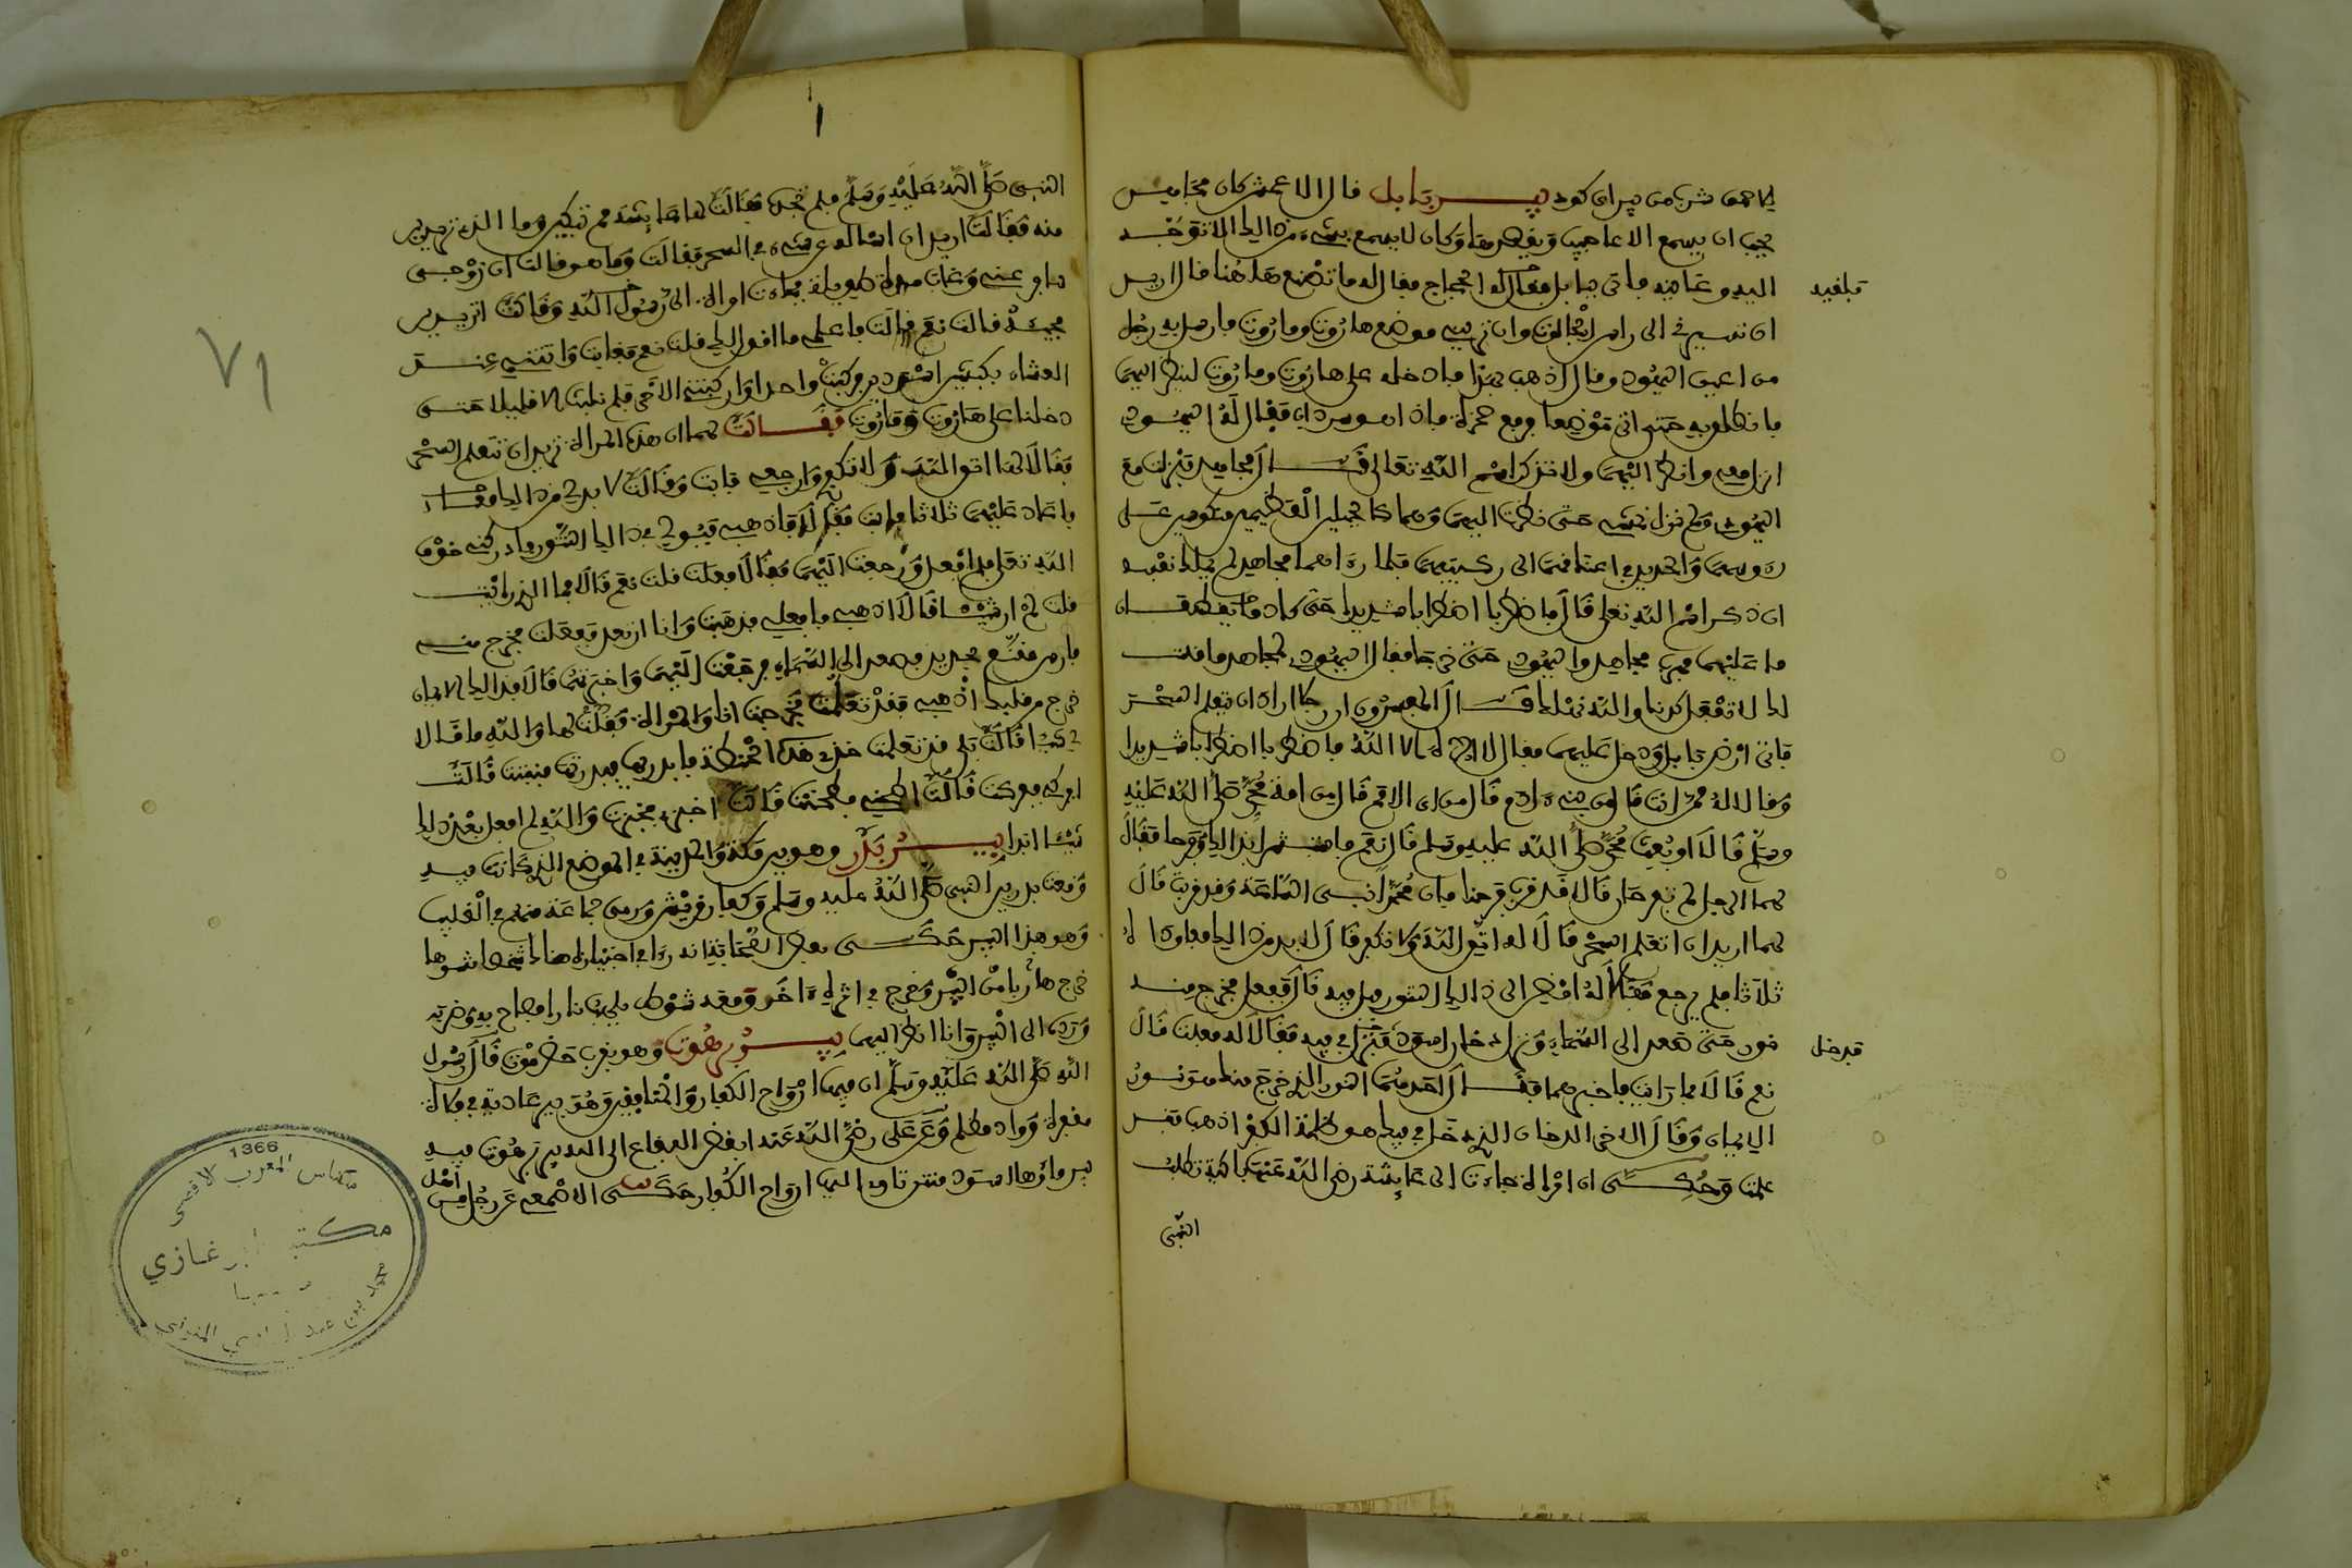 طاهى شرب من بيران كود بير بابل قال الاعمش كان مجاهد
يحب ان يسمع الاعاجيب ويقصدها وكان لا يسمع بشىء من ذالك الا توجه
اليه وعاينه فاتى بابل فلقيه الحجاج فقال له ما تصنع هاهنا قال اريد
ان تسيرنى الى راس الجالوت وان ترينى موضع هاروت وماروت فارسل به رجل
من اعيان اليهود وقال اذهب بهذا فادخله على هاروت وماروت لينظر اليهما
فانطلق به حتى اتى موضعا فرفع صخرة فاذا هو سرداب فقال له اليهودي
انزل معى وانظر اليهما ولا تذكر اسم الله تعالى قال مجاهد فنزلت مع
اليهودى ولم نزل نمشى حتى نظرت اليهما وهما كالجبلين العظيمين منكوسين على
رءوسهما والحديد فى اعناقهما الى ركبتيهما فلما رءاهما مجاهد لم يملك نفسه
ان ذكر اسم الله تعلى قال فاضطربا اضطرابا شديدا حتى كادا يقطعان
ما عليهما فهرب مجاهد واليهودى حتى خرجا فقال اليهودى لمجاهد ما قلت
لك لا تفعل كدنا والله نهلك قال المفسرون ان رجلا اراد ان يتعلم السحر
فاتى ارض بابل ودخل عليهما فقال لا اله الا الله فاضطربا اضطرابا شديدا
وقالا له ممن انت قال من بنى ءادم قال من اى الامم قال من امة محمد صلى الله عليه
وسلم قالا او بعث محمد صلى الله عليه وسلم قال نعم فاستبشرا بذالك وفرحا فقال
لهما الرجل لم تفرحان قالا قد قرب فرجنا فان محمدا نبى الساعة وقد قربت قال
لهما اريد ان اتعلم السحر قالا له اتق الله ولا تكفر قال لا بد من ذالك فعاودا له
ثلاثا فلم يرجع فقالا له امض الى ذالك التنور فبل فيه قال ففعل فخرج منه
نور حتى صعد الى السماء ونزل دخان اسود فدخل فى فيه فقالا له فعلت قال
نعم قالا فما رايت فاخبرهما فقال احدهما النور الذى خرج منك هو نور
الايمان وقال الاخر الدخان الذى دخل فى فيك هو ظلمة الكفر اذهب فقد
علمت وحكى ان امراة جاءت الى عايشة رضى الله عنها باكية تطلب
النبى
فلقيه
فدخل
النبى صلى الله عليه وسلم فلم تجده فقالت لها عايشة مم تبكين وما الذى تريدين
منه فقالت اريد ان اساله عن شىء فى السحر فقالت وما هو قالت ان زوجى
سافر عنى وغاب مدة طويلة فجاءت امراة الى رسول الله وقالت اتريدين
مجيئه قالت نعم قالت فاعملى ما اقول لك قلت نعم فغابت واتتنى عند
العشاء بكبشين اسودين فركبت واحدا واركبتنى الاخر فلم نلبث الا قليلا حتى
دخلنا على هاروت وماروت فقالت لهما ان هذه المراة تريد ان تتعلم السحر
فقالا لها اتق الله ولا تكفرى وارجعى فابت وقالت لا بد لى من ذالك فقالا
فاعادا عليها ثلاثا فابت فقالا فاذهبى فبولى فى ذالك التنور فادركنى خوف
الله تعلى فلم افعل ورجعت اليهما فقالا فعلت قلت نعم قالا فما الذى رايت
قلت لم ار شيئا قالا اذهبى فافعلى فذهبت وانا ارتعد ففعلت فخرج منى
فارس مقنع بحديد فصعد الى السماء فرجعت اليهما واخبرتهما قالا فذالك الايمان
خرج من قلبك اذهبى فقد تعلمت فخرجت انا والمراة فقلت لها والله ما قالا
لى شيئا قالت بلى قد تعلمت خذى هذه الحنطة فابذريها فبذرتها فنبتت قالت
افركى ففركت قالت اطحنى فطحنت قالت اخبزى فخبزت والله لم افعل بعد ذلك
شيئا ابدا بير بدر وهو بين مكة والمدينة فى الموضع الذى كانت فيه
وقعة بدر بين النبى صلى الله عليه وسلم وكفار قريش ورمى جماعة منهم فى القليب
وهو هذا البير حكى بعض الصحابة انه رءا فى اجتيازه هناك شخصا مشوها
خرج هاربا من البير وخرج فى اثره ءاخر ومعه سوط يلهب نارا فصاح به وضربه
ورده الى البير وانا انظر اليهما بير برهوت وهو بقرب حضرموت قال رسول
الله صلى الله عليه وسلم ان فيها ارواح الكفار والمنافقين وهو بير عادية فى فلاة
مقفرة وواد مظلم وعن على رضى الله عنه ابغض البقاع الى الله بير برهوت فيه
بير ماؤها اسود منتن تاوى اليه ارواح الكفار حكى الاصمعى عن رجل من
اهل
٧١
1366
مكناس المغرب الاقصى
مكتبة ابن غازي
محمد بن عبد الهادي المنوني